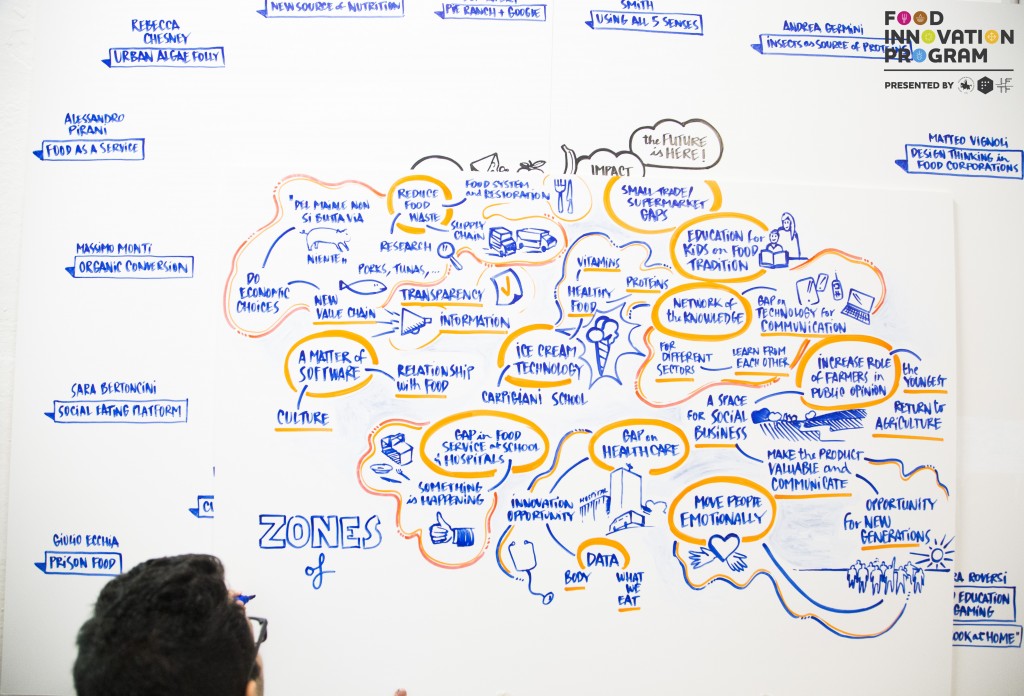 NEW SOURCE of NUTRITION
PIE RANCH + GOOGLE
SMITH
USING ALL 5 SENSES
REBECCA
CHESNEY
URBAN ALGAE FOLLY
ANDREA GERMINI
INSECTS as SOURCE of PROTEINS
FOOD
INNOVATION
PROGRAM
PRESENTED BY
ALESSANDRO
PIRANI
FOOD AS A SERVICE
MATTEO VIGNOLI
DESIGN THINKING in
FOOD CORPORATIONS
MASSIMO MONTI
ORGANIC CONVERSION
SARA BERTONCINI
SOCIAL EATING PLATFORM
GIULIO ECCHIA
PRISON FOOD
the FUTURE
is HERE!
IMPACT
"DEL MAIALE NON
SI BUTTA VIA
NIENTE"
REDUCE
FOOD
WASTE
FOOD SYSTEM
and RESTORATION
SUPPLY
CHAIN
RESEARCH
PORKS, TUNAS, ...
DO
ECONOMIC
CHOICES
NEW
VALUE CHAIN
TRANSPARENCY
INFORMATION
SMALL TRADE/
SUPERMARKET
GAPS
EDUCATION for
KIDS on FOOD
TRADITION
VITAMINS
PROTEINS
HEALTHY
FOOD
NETWORK of
the KNOWLEDGE
GAP on
TECHNOLOGY for
COMMUNICATION
A MATTER of
SOFTWARE
RELATIONSHIP
with FOOD
CULTURE
ICE CREAM
TECHNOLOGY
CARPIGIANI SCHOOL
FOR
DIFFERENT
SECTORS
LEARN FROM
EACH OTHER
INCREASE ROLE
of FARMERS in
PUBLIC OPINION
the
YOUNGEST
RETURN to
AGRICULTURE
A SPACE
FOR SOCIAL
BUSINESS
GAP in FOOD
SERVICE at SCHOOL
& HOSPITALS
SOMETHING
is HAPPENING
GAP on
HEALTH CARE
HOSPITAL
INNOVATION
OPPORTUNITY
DATA
BODY
WHAT
WE
EAT
MAKE the PRODUCT
VALUABLE and
COMMUNICATE
MOVE PEOPLE
EMOTIONALLY
OPPORTUNITY
for NEW
GENERATIONS
ZONES
of
ROVERSI
EDUCATION
GAMING